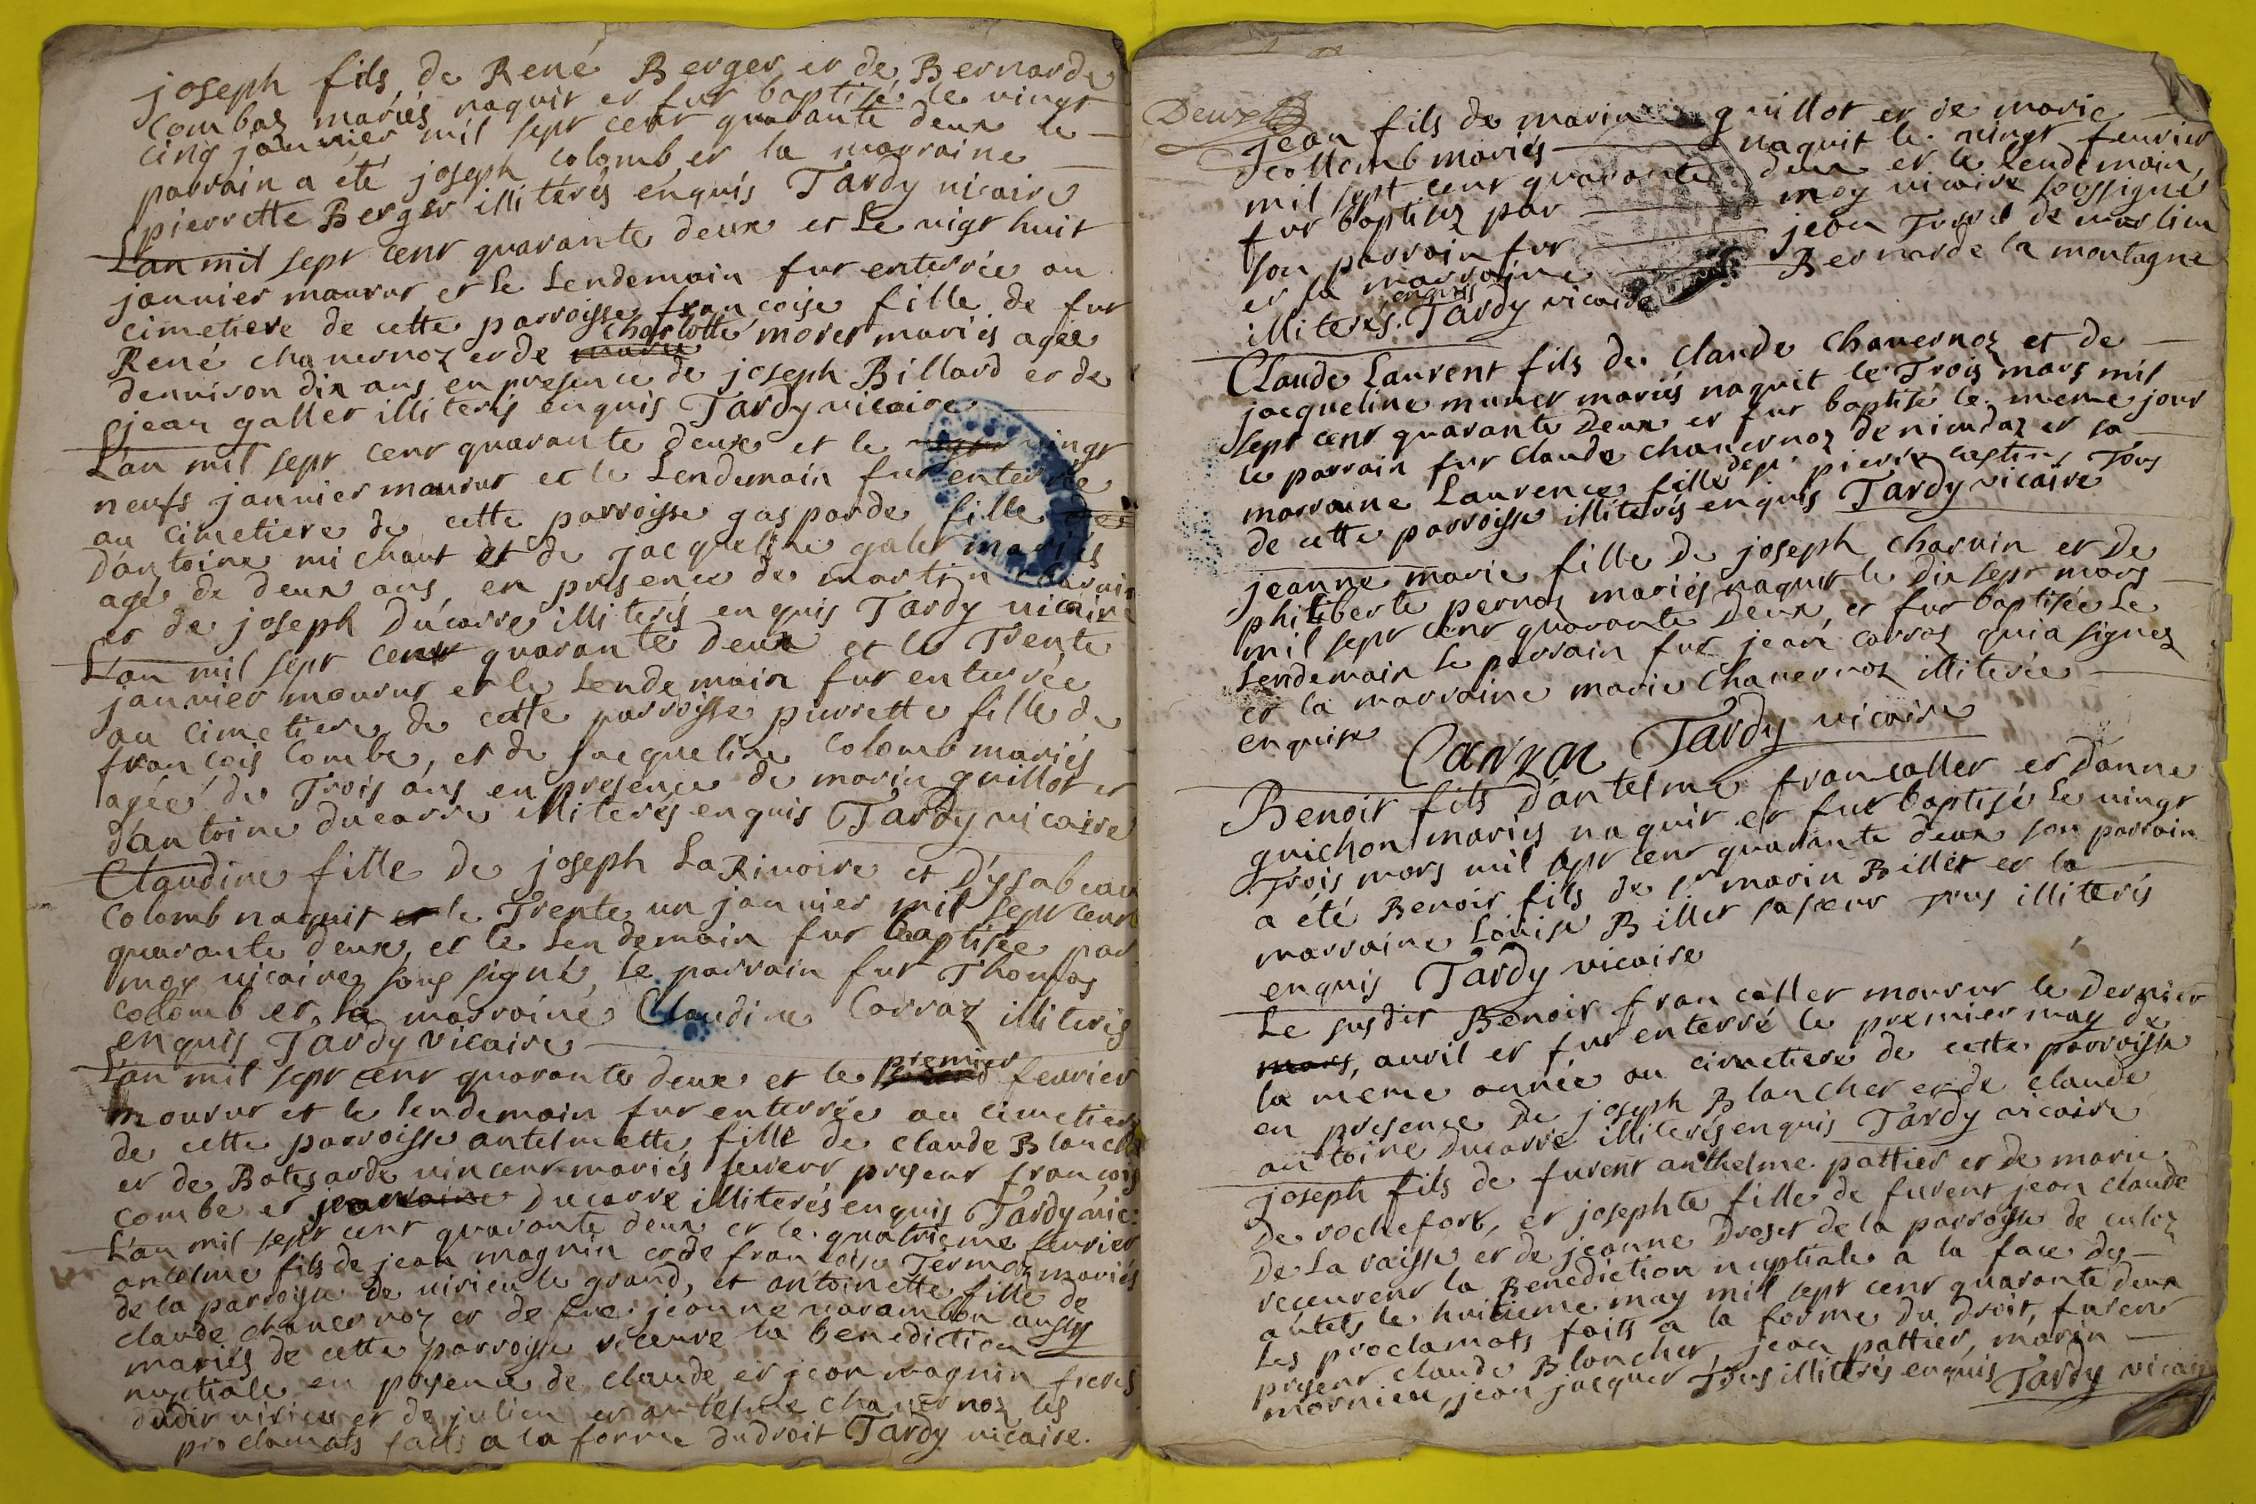 joseph fils de René Berger et de Bernarde
Combaz mariés naquit et fut baptisé le vingt
cinq jannvier mil sept cent quarante deux le
parrain a été joseph Colomb et la marraine
pierrette Berger illitérés enquis Tardy vicaire
L'an mil sept cent quarante deux et Le vigt huit
jannvier mourut et Le Lendemain fut enterrée au
cimetiere de cette parroisse francoise fille de fut
René chavernoz et de charlotte moret mariés agée
denviron dix ans en presence de joseph Billard et de
jean gallet illiterés enquis Tardy vicaire
L'an mil sept cent quarante deux et le vingt
neufs jannvier mourut et le Lendemain fut enterrée
au cimetiere de cette parroisse gasparde fille
d'antoine michaut et de jacqueline galet mariés
age de deux ans, en presence de martin charvin
et de joseph Ducarre illiterés enquis Tardy vicaire
L'an mil sept cent quarante deux et le Trente
janvier mourut et le Lendemain fut enterrée
au cimetiere de cette parroisse pierrette fille de
francois Combe, et de jacqueline Colomb mariés
agée de Trois ans en presence de marin guillot et
d'antoine ducarre illiterés enquis Tardy vicaire
Claudine fille de joseph La Rivoire et D'ysabeau
Colomb naquit le Trente un janvier mil sept cent
quarante deux, et le Lendemain fut baptisée par
moy vicaire sous signé, Le parrain fut Thomas
Collomb et la marraine Claudine Carraz illiterés
enquis Tardy vicaire
L'an mil sept cent quarante deux et le premier fevrier
mourut et le lendemain fut enterrée au cimetiere
de cette parroisse antelmette fille de claude Blanchet
et de Batesarde vincent mariés furent present francois
Combe et Ducarre illiterés enquis Tardy vic:
L'an mil sept cent quarante deux et le quatrieme fevrier
antelme fils de jean magnin et de francoise Termoz mariés
de la parroisse de virieu le grand, et antoinette fille de
claude chavernoz et de fue jeanne varambon aussy
mariés de cette parroisse receure la benediction
nuptiale en presence de claude et jean magnin freres
dudit virieu et de julien et antelme chavernoz les
proclamats faits a la forme du droit Tardy vicaire.
Deux
jean fils de marin guillot et de marie
Collomb mariés naquit le vingt fevrier
mil sept cent quarante deux et le lendemain,
fut baptisez par moy vicaire soussigné
son parrain fut jean
et la marraine Bernarde la montagne
illiterés enquis Tardy vicaire
Claude Laurent fils de Claude Chavernoz et de
jacqueline munet mariés naquit le Trois mars mil
sept cent quarante Deux et fut baptisé le meme jour
le parrain fut Claude chavernoz et sa
marraine Laurence fille de pierre Tous
de cette parroisse illiterés enquis Tardy vicaire
jeanne marie fille de joseph charvin et de
philiberte pernoz mariés naquit le dix sept mars
mil sept cent quarante Deux, et fut baptisée Le
Lendemain le parrain fut jean carraz qui a signez
et la marraine marie Chavernoz illiterée
enquise Carraz Tardy vicaire
Benoit fils d'antelme francallet et danne
guichon mariés naquit et fut baptisé Le vingt
Trois mars mil sept cent quarante deux son parrain
a été Benoit fils de sr marin Billet et la
marraine Louise Billet sa soeur Tous illiterés
enquis Tardy vicaire
Le susdit Benoit francallet mourut le Dernier
mars, avril et fut enterré le premier may de
la meme année au cimetiere de cette parroisse
en presence De joseph Blanchet et de claude
antoine Ducarre illiterés enquis Tardy vicaire
joseph fils de furent anthelme pattier et de marie
De rochefort, et josephte fille de furent jean claude
De La raisse et de jeanne Droset de la parroisse de culoz
receurent la Benediction nuptiale a la face des
autels le huitieme may mil sept cent quarante deux
Les proclamats faits a la forme du droit, furent
present claude Blanchet, jean pattier, marin
mornieu, jean jacquet Tous illiterés enquis Tardy vicaire